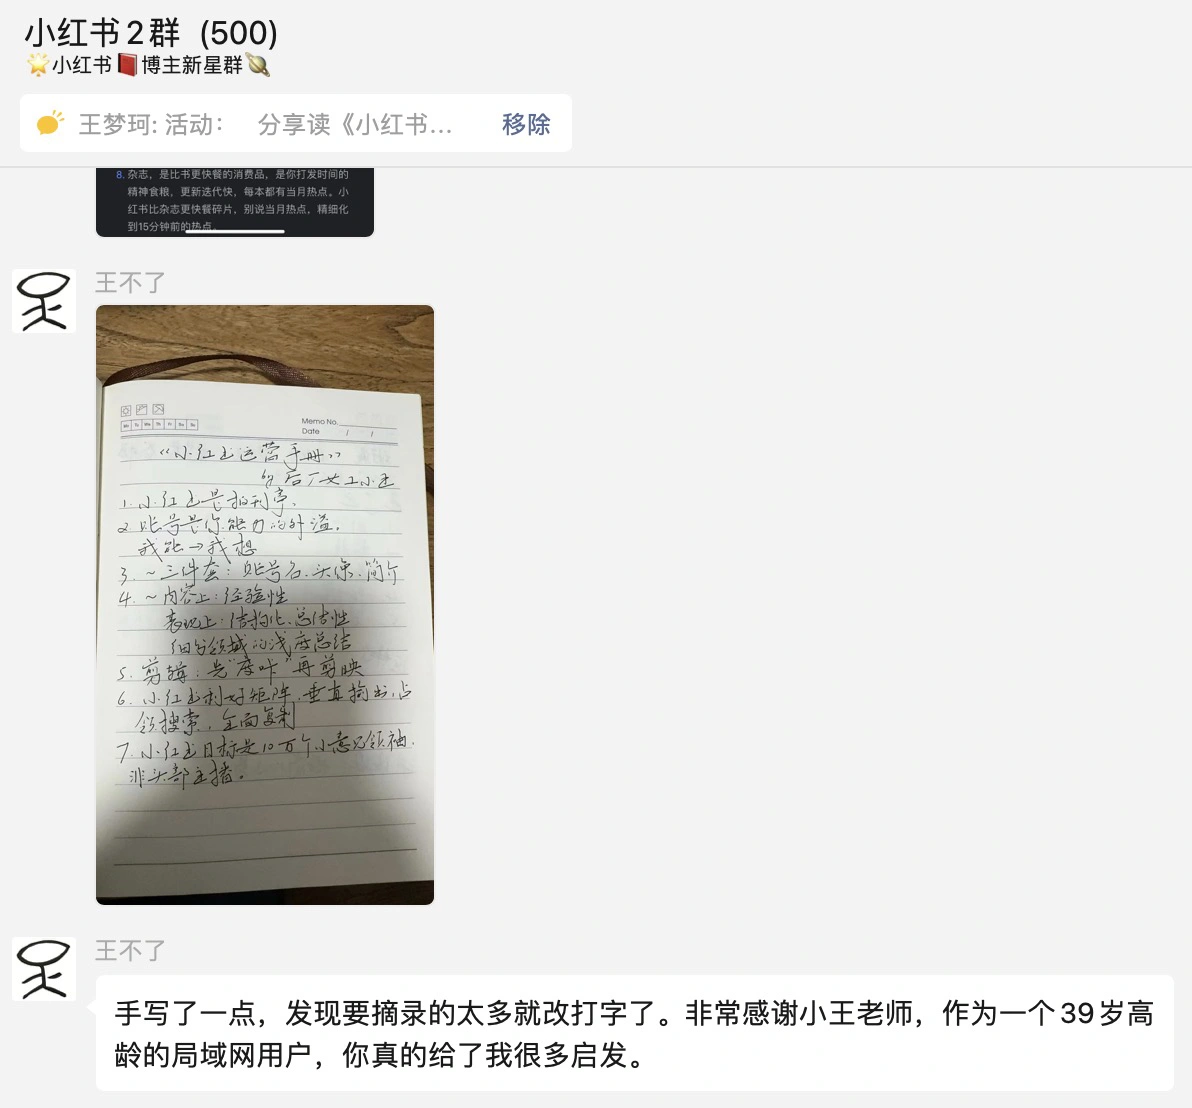 小红书2群 (500)
🌟小红书📕博主新星群🪐
王梦珂: 活动： 分享读《小红书...
移除
8. 杂志，是比书更快餐的消费品，是你打发时间的
精神食粮，更新迭代快，每本都有当月热点。小
红书比杂志更快餐碎片，别说当月热点，精细化
到15分钟前的热点。
王不了
Mo Tu We Th Fr Sa Su
Memo No.
Date / /
《小红书运营手册》
by 后厂女工小王
1. 小红书是报刊亭、
2. 账号是你能力的外溢。
我能→我想
3. ~三件套：账号名、头像、简介
4. ~内容上：经验性
表现上：结构化、总结性
细分领域的浅度总结
5. 剪辑：先"度咔"再剪映
6. 小红书利好矩阵，垂直搞出，占
领搜索，全面复制
7. 小红书目标是10万个小意见领袖，
非头部主播。
王不了
手写了一点，发现要摘录的太多就改打字了。非常感谢小王老师，作为一个39岁高
龄的局域网用户，你真的给了我很多启发。